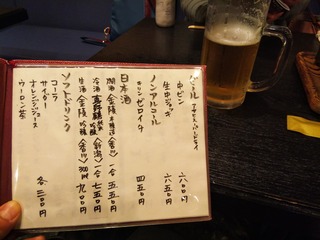 中ビン 六〇〇円
生中ジョッキ 六五〇円
ノンアルコール
キリンゼロイチ 四五〇円
日本酒
一合 五五〇円
冷酒 吟醸〈新潟〉一合 七五〇円
生酒〈金陵 吟醸〈香川〉300ml 九〇〇円
ソフトドリンク
コーラ
サイダー
オレンジジュース
ウーロン茶 各三〇〇円